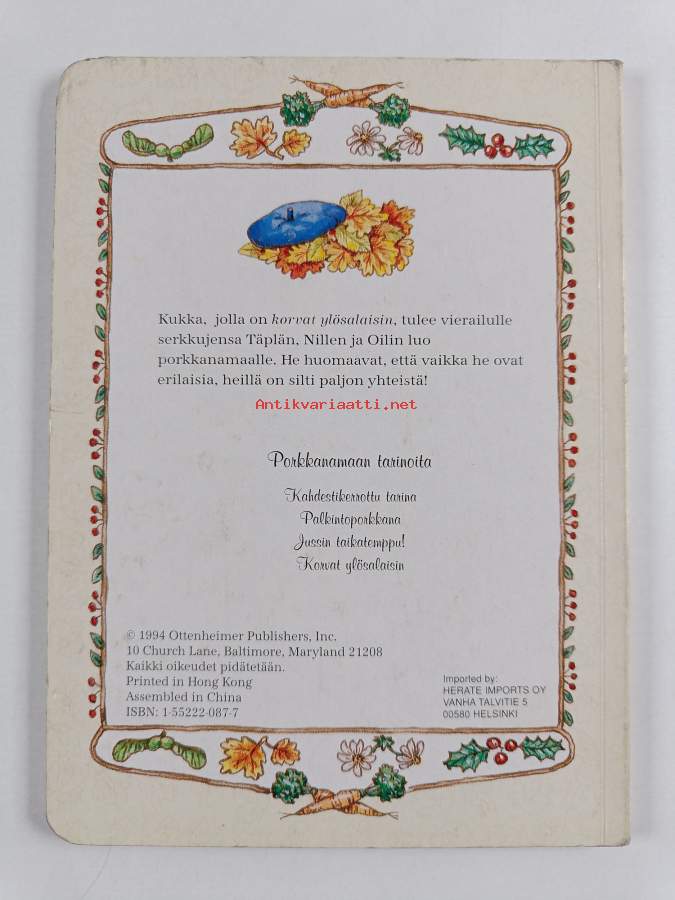 Kukka, jolla on korvat ylösalaisin, tulee vierailulle
serkkujensa Täplän, Nillen ja Oilin luo
porkkanamaalle. He huomaavat, että vaikka he ovat
erilaisia, heillä on silti paljon yhteistä!
Antikvariaatti.net
Porkkanamaan tarinoita
Kahdestikerrottu tarina
Palkintoporkkana
Jussin taikatemppu!
Korvat ylösalaisin
© 1994 Ottenheimer Publishers, Inc.
10 Church Lane, Baltimore, Maryland 21208
Kaikki oikeudet pidätetään.
Printed in Hong Kong
Assembled in China
ISBN: 1-55222-087-7
Imported by:
HERATE IMPORTS OY
VANHA TALVITIE 5
00580 HELSINKI